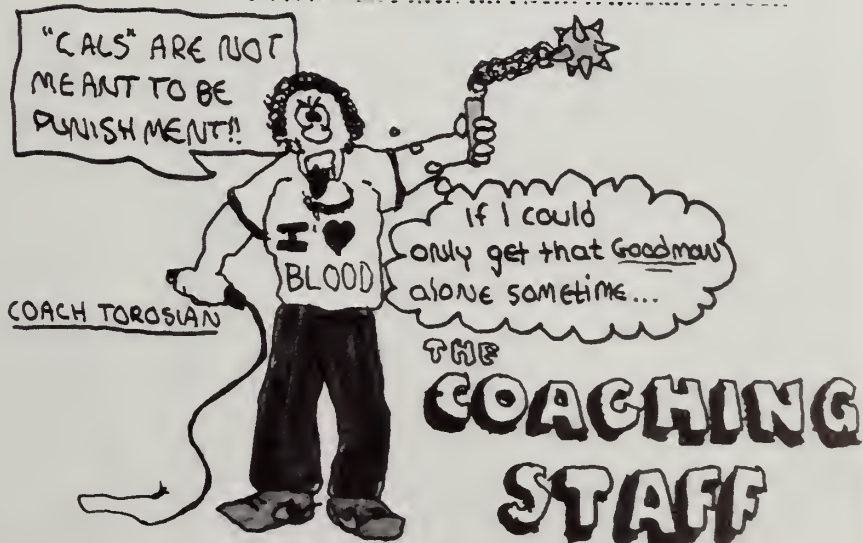 "CALS" ARE NOT
MEANT TO BE
PUNISHMENT!!
If I could
only get that Goodman
alone sometime...
I ♥
BLOOD
COACH TOROSIAN
THE
COACHING
STAFF